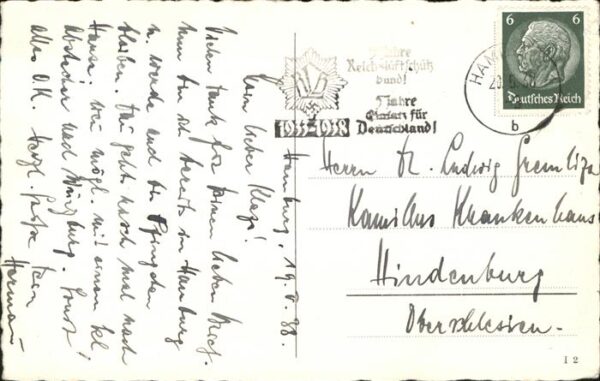 5 Jahre
Reichsluftschutz
bund!
5 Jahre
Einsatz für
Deutschland!
1933-1938
6 6
Deutsches Reich
HAM
b
Hamburg, 19.V.38.
Mein lieber
Vielen Dank für Deinen lieben Brief.
Nun bin ich bereits in Hamburg
u. werde auch bis Pfingsten
bleiben. Dann gehts noch mal nach
Hause, wenn mögl. mit einem kl.
Abstecher nach Würzburg. Sonst
alles O.K. Herzl. Grüße Dein
Hermann
Herrn Dr. Ludwig Gremliza
Kamillus Krankenhaus
Hindenburg
Oberschlesien.
I 2